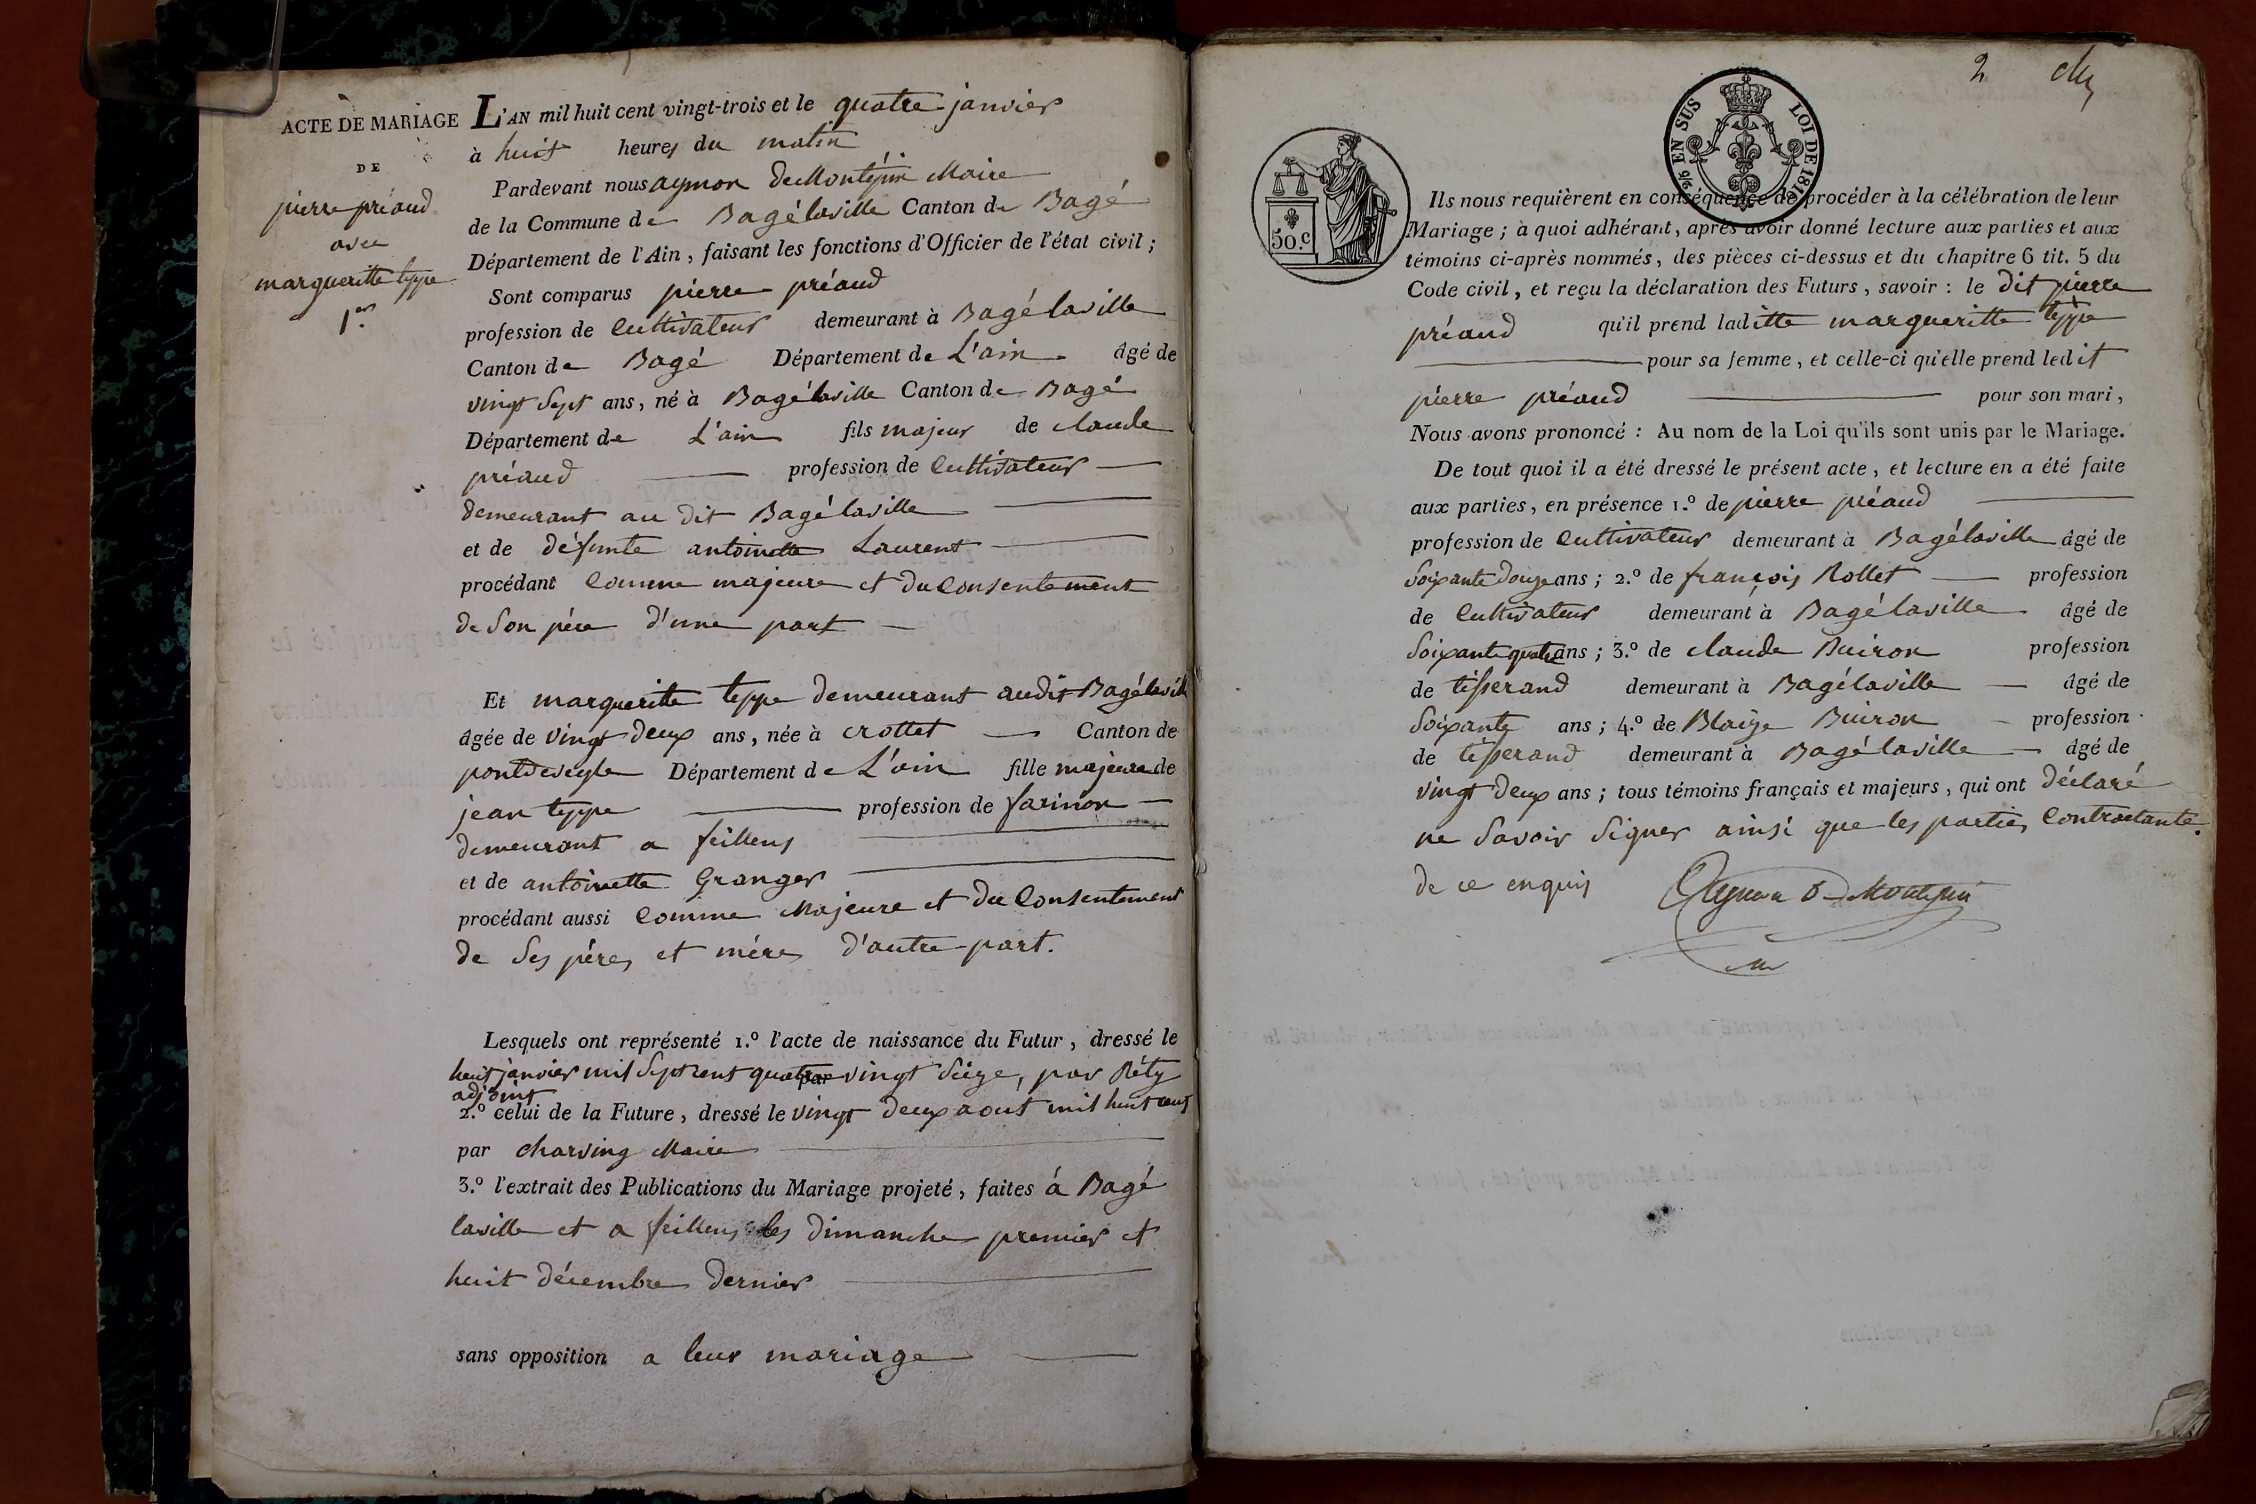 ACTE DE MARIAGE
DE
pierre préaud
avec
margueritte teppe
1er.
L'AN mil huit cent vingt-trois et le quatre janvier
à huit heures du matin
Pardevant nous aymon DeMontépin Maire
de la Commune de Bagélaville Canton de Bagé
Département de l'Ain, faisant les fonctions d'Officier de l'état civil ;
Sont comparus pierre préaud
profession de Cultivateur demeurant à Bagélaville
Canton de Bagé Département de L'ain âgé de
vingt Sept ans, né à Bagélaville Canton de Bagé
Département de L'ain fils majeur de claude
préaud profession de Cultivateur
demeurant au dit Bagélaville
et de défunte antoinette Laurent
procédant Comme majeure et du Consentement
de Son père d'une part
Et margueritte teppe demeurant audit Bagélaville
âgée de vingt deux ans, née à crottet Canton de
pontdeveyle Département de L'ain fille majeure de
jean teppe profession de farinon
demeurant a feillens
et de antoinette Granger
procédant aussi Comme Majeure et du Consentement
de Ses pères et mères d'autre part.
Lesquels ont représenté 1.º l'acte de naissance du Futur, dressé le
huit janvier mil Sept cent quatre par vingt Seize, par Réty
adjoint
2.º celui de la Future, dressé le vingt deux aout mil huit cent
par charving Maire
3.º l'extrait des Publications du Mariage projeté, faites á Bagé
laville et a feillens les dimanche premier et
huit décembre dernier
sans opposition a leur mariage
2
50.c
2/6 EN SUS LOI DE 1816
Ils nous requièrent en conséquence de procéder à la célébration de leur
Mariage ; à quoi adhérant, après avoir donné lecture aux parties et aux
témoins ci-après nommés, des pièces ci-dessus et du chapitre 6 tit. 5 du
Code civil, et reçu la déclaration des Futurs, savoir : le dit pierre
préaud qu'il prend laditte margueritte teppe
pour sa femme, et celle-ci qu'elle prend ledit
pierre préaud pour son mari,
Nous avons prononcé : Au nom de la Loi qu'ils sont unis par le Mariage.
De tout quoi il a été dressé le présent acte, et lecture en a été faite
aux parties, en présence 1.º de pierre préaud
profession de Cultivateur demeurant à Bagélaville âgé de
Soixante douze ans ; 2.º de françois Rollet profession
de Cultivateur demeurant à Bagélaville âgé de
Soixante quatre ans ; 3.º de claude Buiron profession
de tisserand demeurant à Bagélaville âgé de
Soixante ans ; 4.º de Blaize Buiron profession
de tisserand demeurant à Bagélaville âgé de
vingt deux ans ; tous témoins français et majeurs, qui ont déclaré
ne Savoir Signer ainsi que les parties Contractante.
de ce enquis Aymon DeMontépin